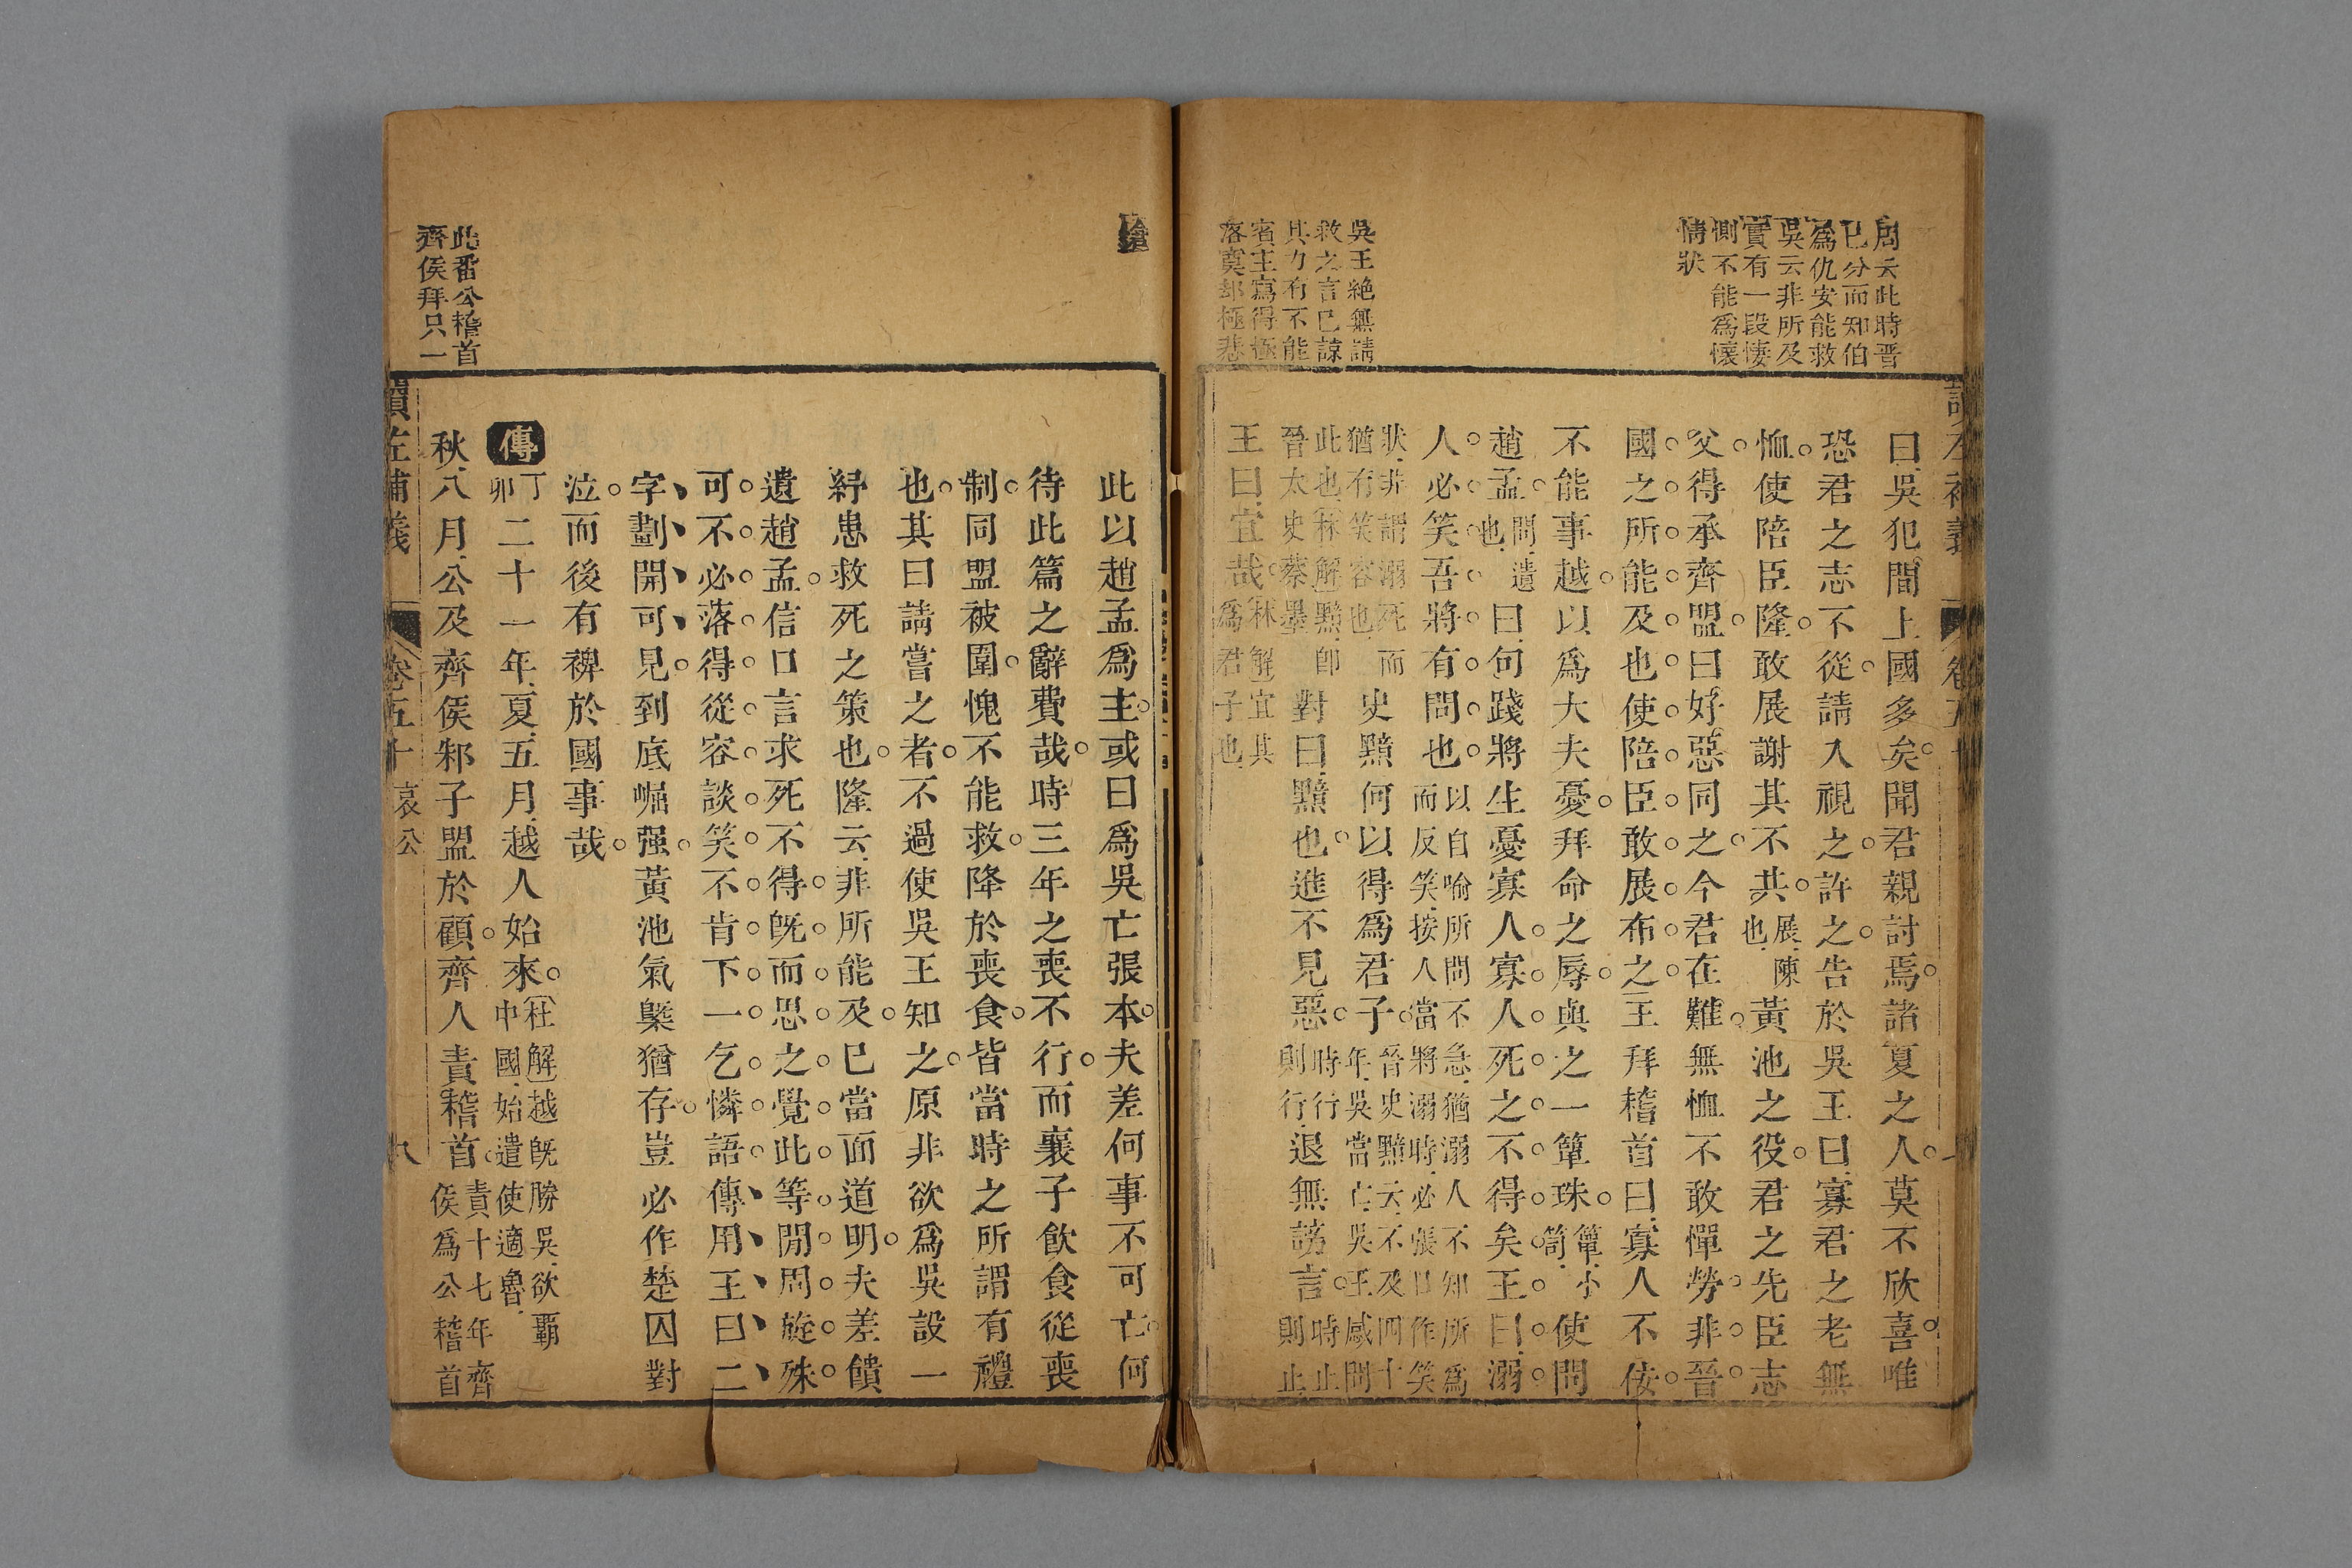 周云此時晋
已分而知伯
爲仇安能救
吳云非所及
實有一段悽
惻不能爲懷
情狀
吳王絶無請
救之言已諒
其力有不能
賓主寫得極
落寞却極悲
曰吳犯間上國多矣聞君親討焉諸夏之人莫不欣喜唯
恐君之志不從請入視之許之告於吳王曰寡君之老無
恤使陪臣隆敢展謝其不共展陳也黃池之役君之先臣志
父得承齊盟曰好惡同之今君在難無恤不敢憚勞非晉
國之所能及也使陪臣敢展布之王拜稽首曰寡人不佞
不能事越以爲大夫憂拜命之辱與之一簞珠簞小笥使問
趙孟問遺也曰句踐將生憂寡人寡人死之不得矣王曰溺
人必笑吾將有問也以自喻所問不急猶溺人不知所爲而反笑按人當將溺時必張口作笑
狀非謂溺死而猶有笑容也史黯何以得爲君子晉史黯云不及四十年吳當亡吳王感問
此也林解黯卽晉太史蔡墨對曰黯也進不見惡時行則行退無謗言時止則止
王曰宜哉林解宜其爲君子也
讀左補義
卷五十
此以趙孟爲主或曰爲吳亡張本夫差何事不可亡何
待此篇之辭費哉時三年之喪不行而襄子飮食從喪
制同盟被圍愧不能救降於喪食皆當時之所謂有禮
也其曰請嘗之者不過使吳王知之原非欲爲吳設一
紓患救死之策也隆云非所能及已當面道明夫差饋
遺趙孟信口言求死不得旣而思之覺此等閒周旋殊
可不必落得從容談笑不肯下一乞憐語傳用王曰二
字劃開可見到底崛强黃池氣槩猶存豈必作楚囚對
泣而後有裨於國事哉
傳丁卯二十一年夏五月越人始來杜解越旣勝吳欲覇中國始遣使適魯
秋八月公及齊侯邾子盟於顧齊人責稽首責十七年齊侯爲公稽首
此番公稽首
齊侯拜只一
讀左補義
卷五十
哀公
八